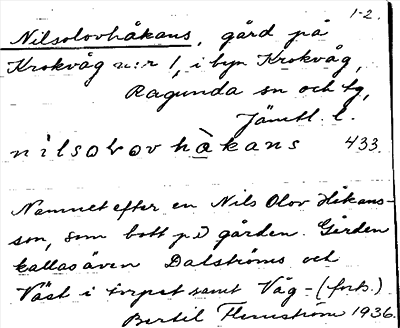 1-2.
Nilsolovhåkans, gård på
Krokvåg n:r 1, i byn Krokvåg,
Ragunda sn och tg,
Jämtl. l.
nilsolovhàkans 433.
Namnet efter en Nils Olov Håkans-
son, som bott på gården. Gården
kallas även Dalströms och
Väst i torpet samt Våg- (forts.)
Bertil Flemström 1936.